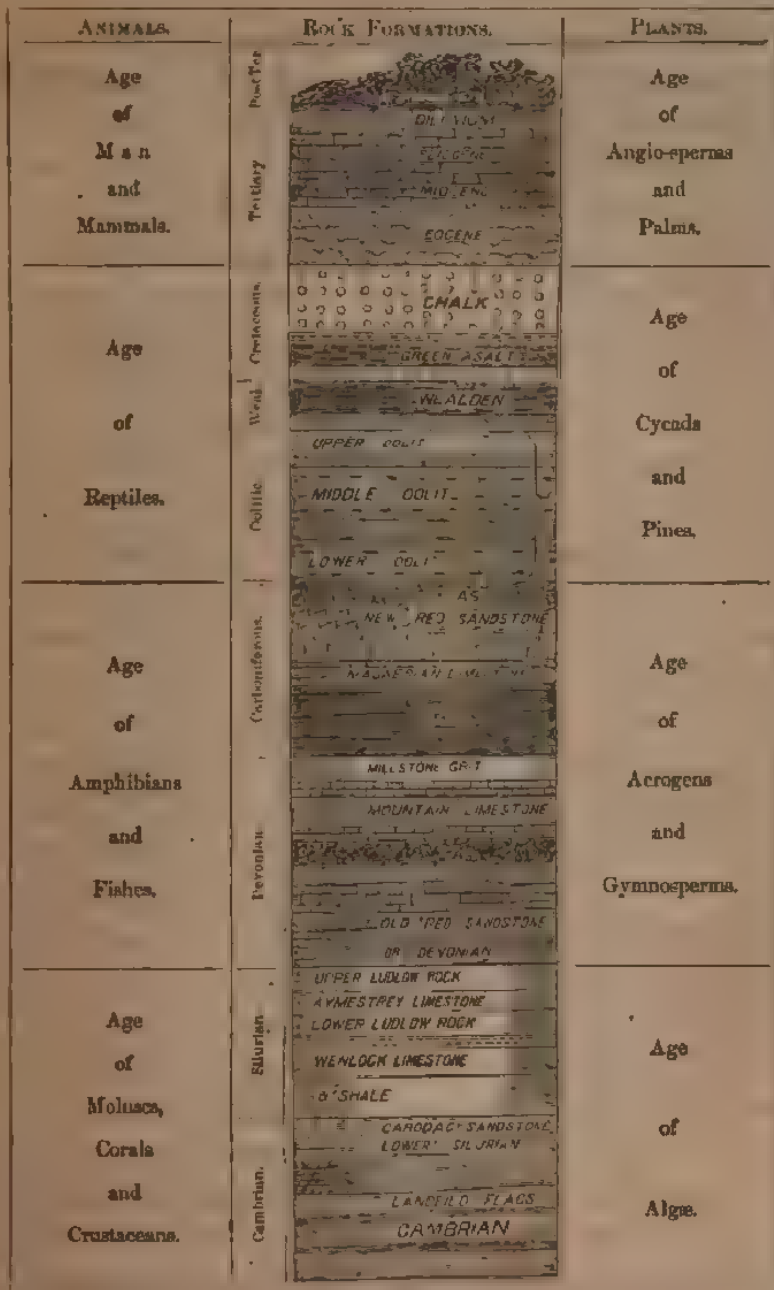 ANIMALS.
ROCK FORMATIONS.
PLANTS.
Age
of
Man
and
Mammals.
Age
of
Reptiles.
Age
of
Amphibians
and
Fishes.
Age
of
Moluscs,
Corals
and
Crustaceans.
Post Ter.
Tertiary
Cretaceous.
Weal.
Oolitic
Carboniferous.
Devonian.
Silurian
Cambrian.
MIOCENE
EOCENE
CHALK
GREEN
WEALDEN
UPPER OOLIT
MIDDLE OOLIT
LOWER OOLIT
AS
NEW RED SANDSTONE
MILLSTONE GRIT
MOUNTAIN LIMESTONE
OLD RED SANDSTONE
OR DEVONIAN
UPPER LUDLOW ROCK
AYMESTREY LIMESTONE
LOWER LUDLOW ROCK
WENLOCK LIMESTONE
& SHALE
CARODAC SANDSTONE
LOWER SILURIAN
LANDFILD FLAGS
CAMBRIAN
Age
of
Angio-sperms
and
Palms.
Age
of
Cycads
and
Pines.
Age
of
Acrogens
and
Gymnosperms.
Age
of
Algæ.